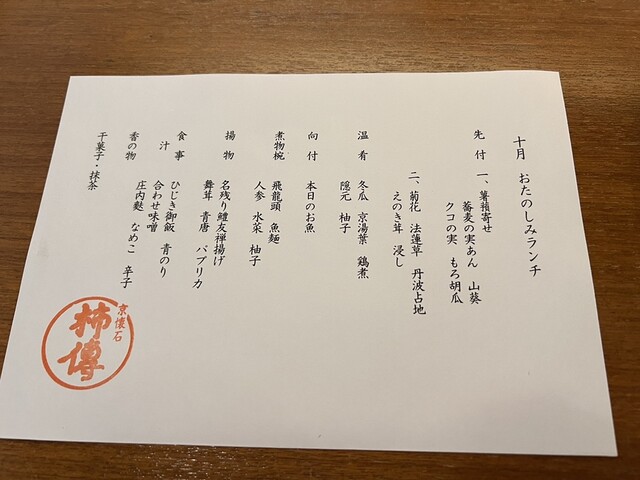 十月 おたのしみランチ
先付 一、薯蕷寄せ
蕎麦の実あん 山葵
クコの実 もろ胡瓜
二、菊花 法蓮草 丹波占地
えのき茸 浸し
温肴 冬瓜 京湯葉 鶏煮
隠元 柚子
向付 本日のお魚
煮物椀 飛龍頭 魚麺
人参 水菜 柚子
揚物 名残り鱧友禅揚げ
舞茸 青唐 パプリカ
食事 ひじき御飯 青のり
汁 合わせ味噌
庄内麩 なめこ 辛子
香の物
干菓子・抹茶
京懐石
柿傳